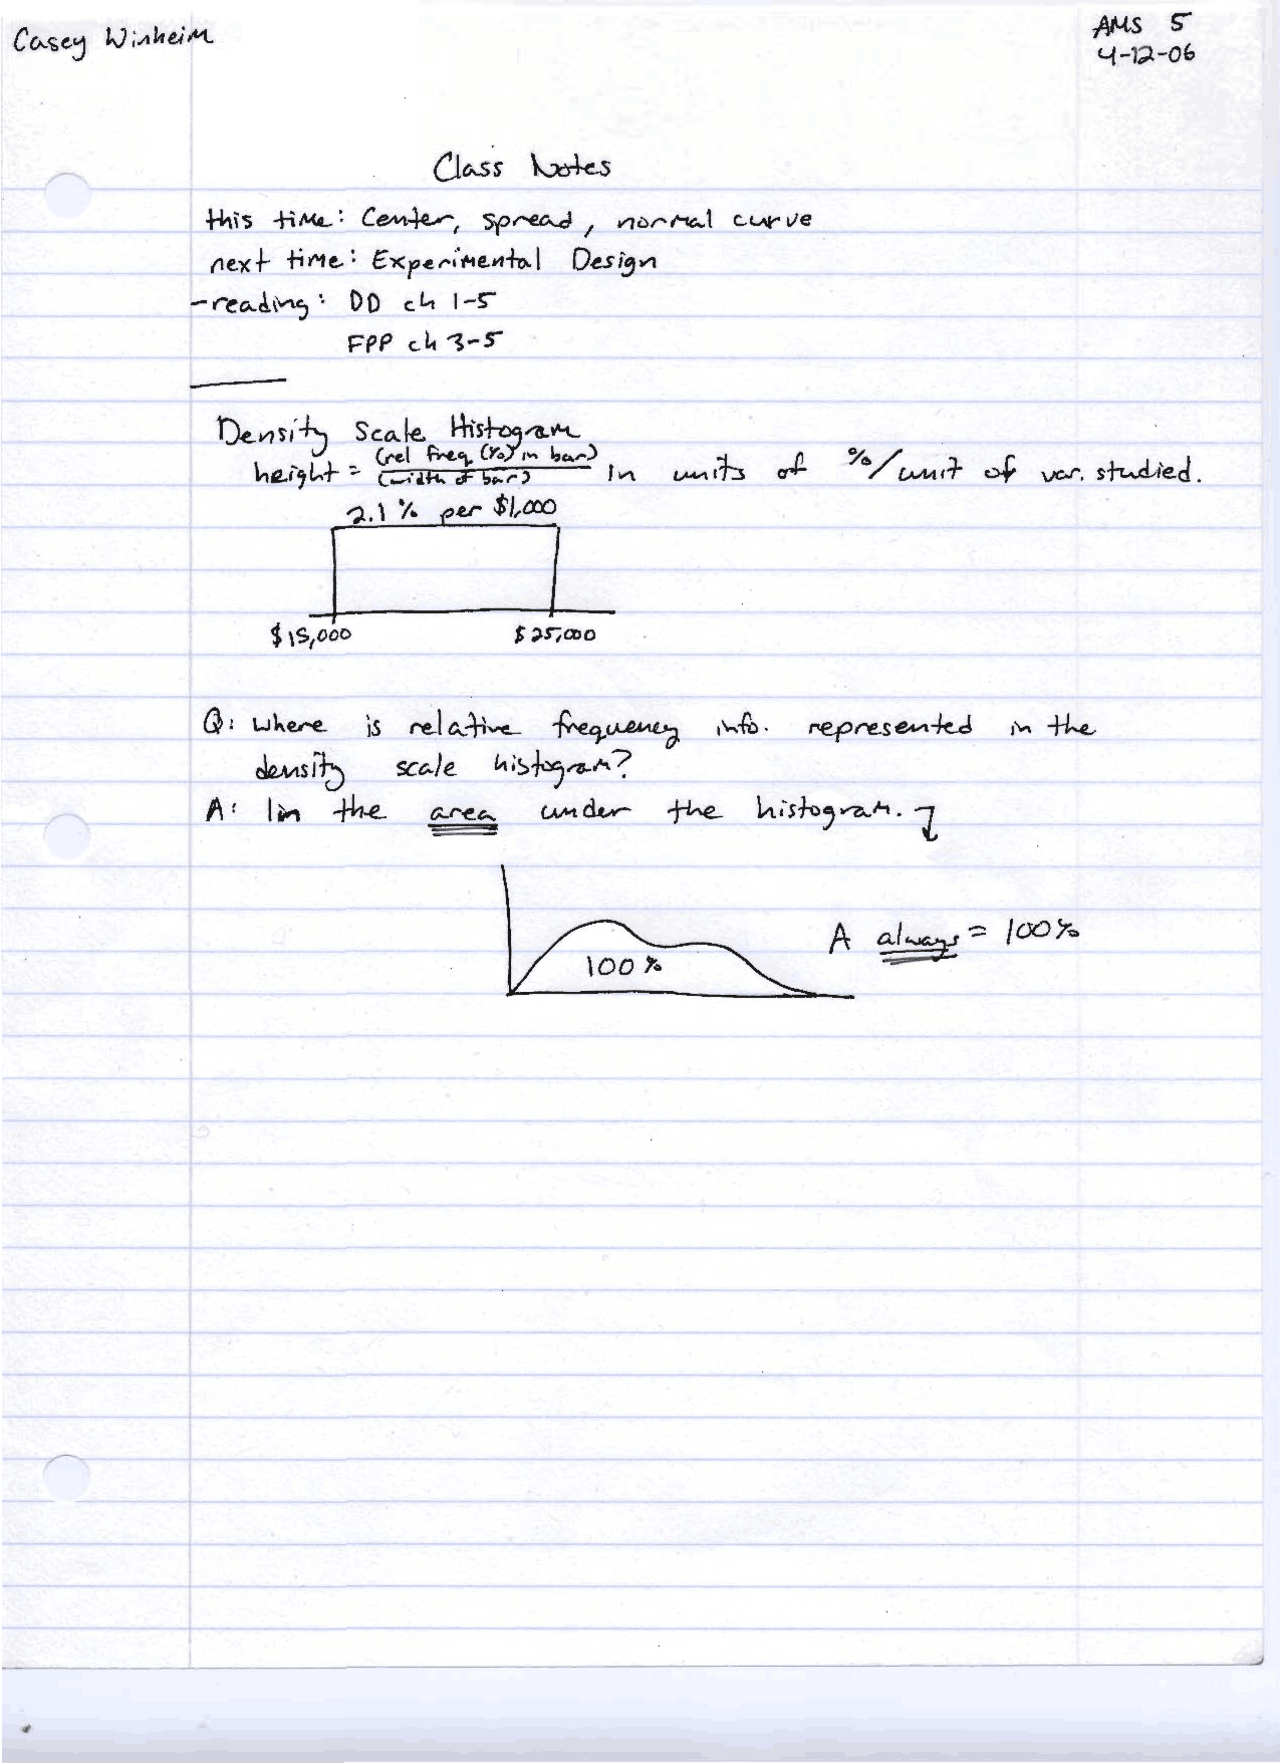 Casey Winheim
AMS 5
4-12-06
Class Notes
this time: Center, spread, normal curve
next time: Experimental Design
-reading: DD ch 1-5
FPP ch 3-5
Density Scale Histogram
height = (rel freq (%) in bar) / (width of bar) in units of %/unit of var. studied.
2.1% per $1,000
$15,000 $25,000
Q: where is relative frequency info. represented in the
density scale histogram?
A: in the area under the histogram.
100%
A always = 100%